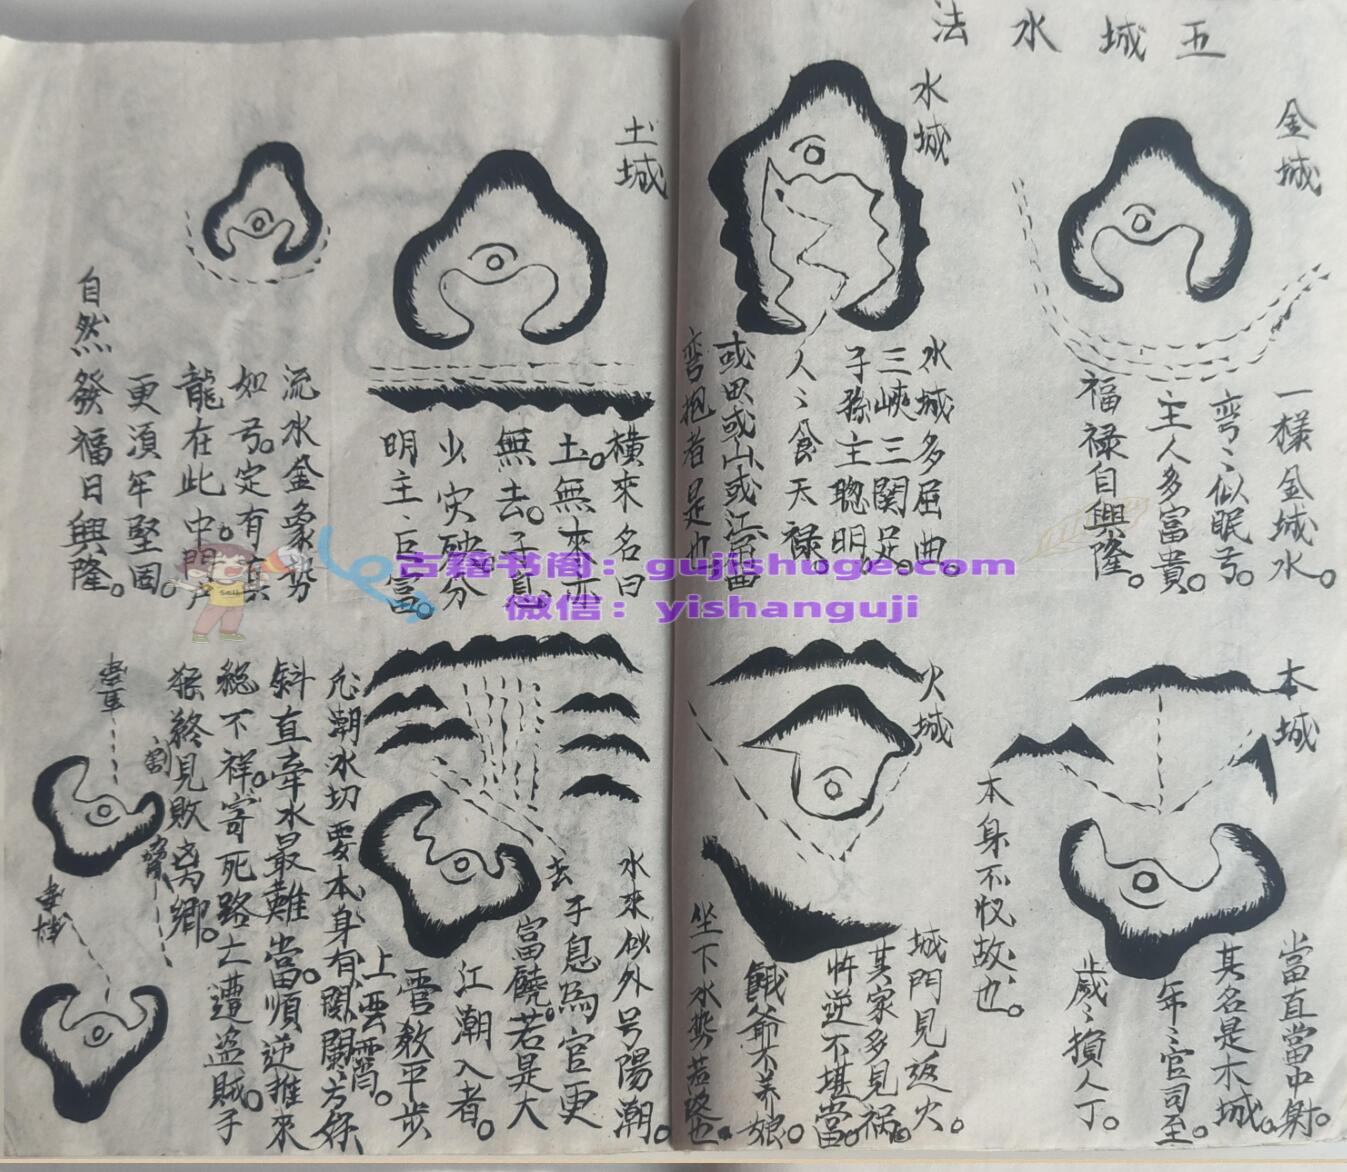 五城水法
金城
一樣金城水。
弯〻似眠弓。
主人多富貴。
福禄自興隆。
水城
水城多屈曲。
三峽三関足。
子孫主聰明。
人〻食天禄。
或田或山或江畄
弯抱者是也
木城
當直當中射。
其名是木城。
年〻官司至。
歲〻損人丁。
本身不忟故〻也。
火城
城門見返火。
其家多見禍。
忤逆不堪當。
餓爺不养娘。
坐下水势若竣也
土城
橫來名曰
土。無來亦
無去。子息
少灾砂分
明主巨富。
流水金象势
如弓。定有真
龍在此中。門户
更湏牢堅固。
自然發福日興隆。
水來似外号陽潮。
去
子息為官更
富饒。若是大
江潮入者。
雲教平步
上雲霄。
凢潮水切要本身有関闌方條
斜直牽水最難當。順逆推來
絕不祥。寄死路亡遭盗賊。子
孫終見敗离鄉。
割
古籍书阁：gujishuge.com
微信：yishanguji